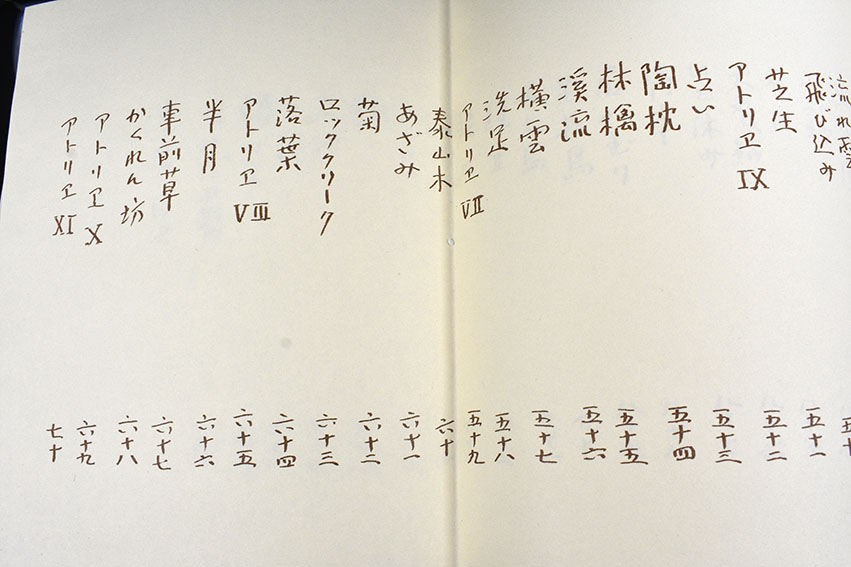 流れ雲
飛び込み 五十
芝生 五十一
アトリヱ IX 五十二
占い 五十三
陶枕 五十四
林檎 五十五
溪流 五十六
横雲 五十七
洗足 五十八
アトリヱ VII 五十九
泰山木 六十
あざみ 六十一
菊 六十二
ロッククリーク 六十三
落葉 六十四
アトリヱ VIII 六十五
半月 六十六
車前草 六十七
かくれん坊 六十八
アトリヱ X 六十九
アトリヱ XI 七十